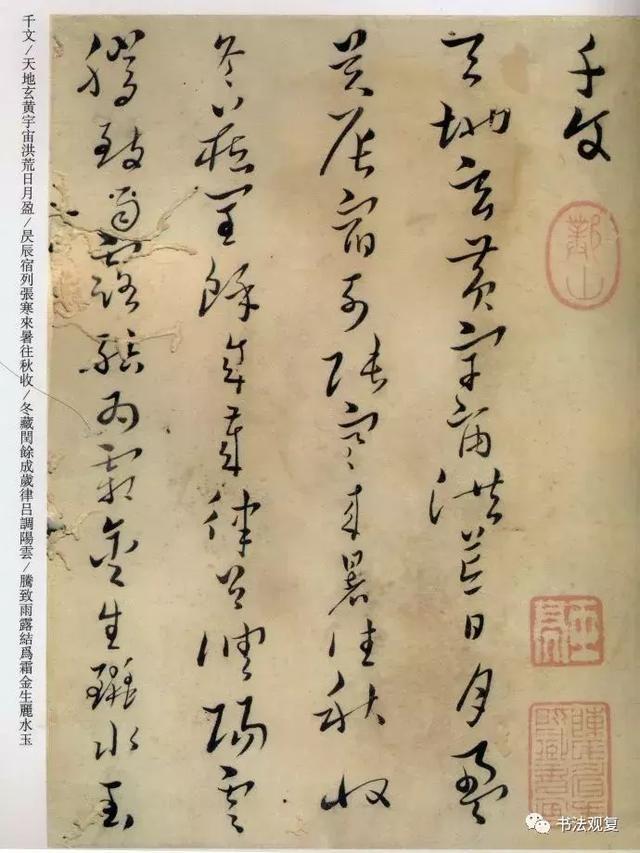 千文
天地玄黄宇宙洪荒日月盈
昃辰宿列張寒來暑往秋收
冬藏閏餘成歲律吕調陽雲
騰致雨露結爲霜金生麗水玉
千文／天地玄黄宇宙洪荒日月盈／昃辰宿列張寒來暑往秋收／冬藏閏餘成歲律吕調陽雲／騰致雨露結爲霜金生麗水玉
书法观复